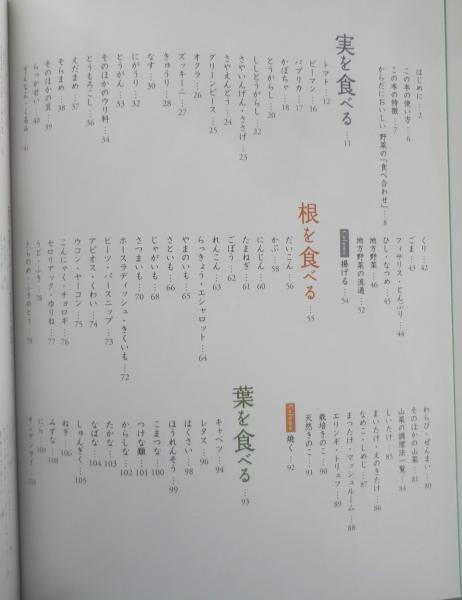 はじめに…2
この本の使い方…6
この本の特徴…7
からだにおいしい野菜の「食べ合わせ」…8
実を食べる…11
トマト…12
ピーマン…16
パプリカ…17
かぼちゃ…18
とうがらし…20
ししとうがらし…22
さやいんげん・ささげ…23
さやえんどう…24
グリーンピース…25
オクラ…26
ズッキーニ…27
きゅうり…28
なす…30
にがうり…32
とうがん…33
そのほかのウリ科…34
とうもろこし…36
えだまめ…37
そらまめ…38
そのほかの豆…39
らっかせい…40
ぎんなん・くるみ 41
くり…42
ごま…43
フィサリス・とんぶり…44
ひし・なつめ…45
地方野菜…46
地方野菜の流通…52
揚げる…54
根を食べる…55
だいこん…56
かぶ…58
にんじん…60
たまねぎ…61
ごぼう…62
れんこん…63
らっきょう・エシャロット…64
やまのいも…65
さといも…66
じゃがいも…68
さつまいも…70
ホースラディッシュ・きくいも…72
ビーツ・パースニップ…73
アピオス・くわい…74
ウコン・ヤーコン…75
こんにゃく・チョロギ…76
セロリアック・ゆりね…77
うど・ふき…78
たらのめ・ 79
わらび・ぜんまい…80
そのほかの山菜…81
山菜の調理法一覧…84
しいたけ…85
まいたけ・えのきたけ…86
なめこ・しめじ…87
まつたけ・マッシュルーム…88
エリンギ・トリュフ…89
栽培きのこ…90
天然きのこ…91
焼く…92
葉を食べる…93
キャベツ…94
レタス…96
はくさい…98
ほうれんそう…99
こまつな…100
つけな類…101
からしな…102
たかな…103
なばな…104
しゅんぎく…105
ねぎ…106
みずな…108
にら…109